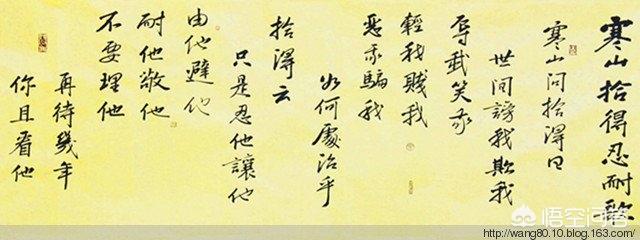 寒山拾得忍耐歌
寒山問拾得曰
世間謗我欺我
辱我笑我
輕我賤我
惡我騙我
如何處治乎
拾得云
只是忍他讓他
由他避他
耐他敬他
不要理他
再待幾年
你且看他
悟空问答
http://wang80.10.blog.163.com/